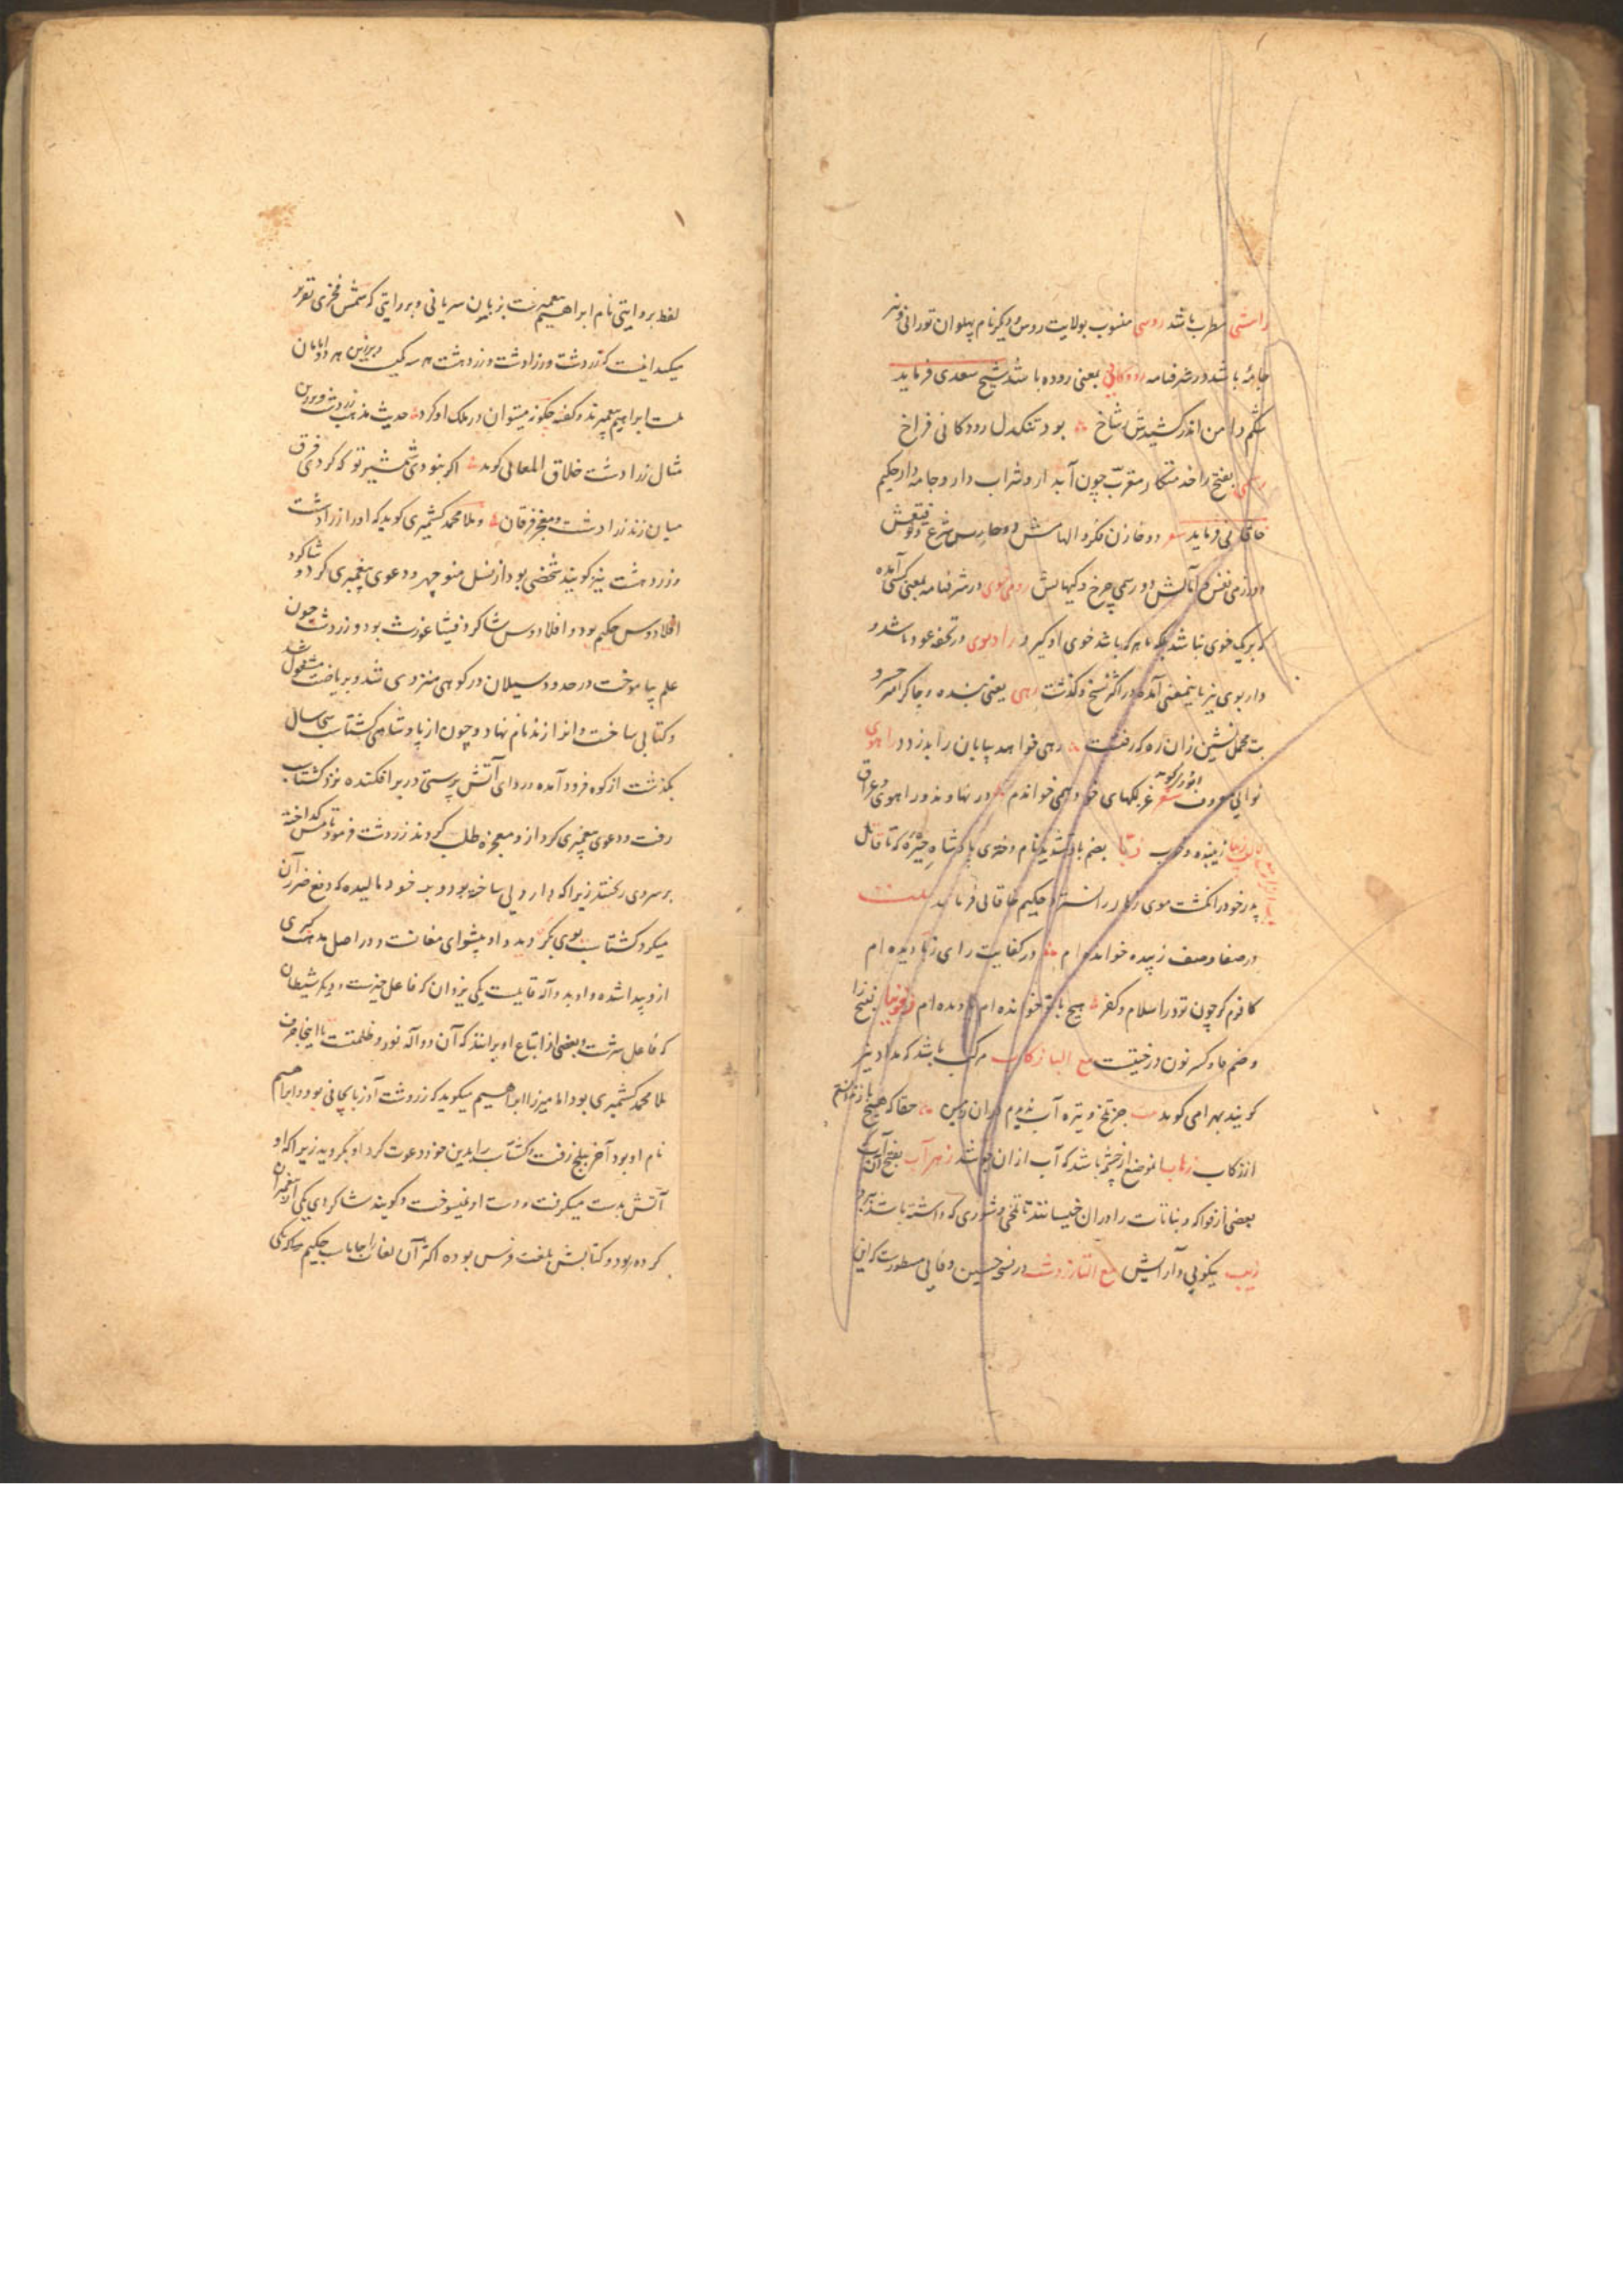 راستی مطرب باشد روسی منسوب بولایت روس و دیکر نام پهلوان تورانی و نیز
جامهٔ باشد در شرفنامه رودکانی بمعنی روده باشد شیخ سعدی فرماید
شکم دامن اندر کشیدش ز شاخ بود تنکدل رودکانی فراخ
بفتح را خدمتکار مقرب چون آبدار و شراب دار و جامه دار حکیم
خاقانی فرماید شعر دو خازن فکر و الهامش دو حارس شرع و توفیقش
دو رسمی چرخ و کیهانش در شرفنامه بمعنی کسی آمده
که بریک خوی نباشد بلکه با هر که باشد خوی او کیرد رادبوی در تحفه عود باشد و
داربوی نیز باینمعنی آمده در اکثر نسخ و کذشت رهی یعنی بنده و چاکر امیر خسرو
بت محمل نشین زان ره که رفتست رهی خواهد بپایان راند زود راهوی
نوایی معروف شعر غزلکهای خود همی خواندم در نهاوند و راهوی و عراق
زیبنده و خوب زبا بضم با و تشدید نام دختری پادشاه حیره که تا قاتل
پدر خود را نکشت موی زهار را نسترد حکیم خاقانی فرماید بیت
در صفا وصف زبیده خوانده ام در کفایت رای زبا دیده ام
کافرم کر چون تو در اسلام و کفر هیچ بانو خوانده ام یا دیده ام بفتح زا
و ضم فا و کسر نون در حقیقت مع البا زکاب مرکب باشد که مداد نیز
کویند بهرامی کوید جز تلخ و تیره آب ندیدم حقا که هیچ باز ندانستم
از زکاب زهاب موضع از چشمه باشد که آب از ان جوشد زهرآب بفتح آن آب
بعضی از فواکه و نباتات را در ان خیسانند تا تلخی و شوری که داشته باشد ببرد
زیب نیکویی و آرایش مع التا زردشت در نسخه حسین وفایی مسطورست که این
لفظ بروایتی نام ابراهیم پیغمبرست بزبان سریانی و بروایتی که شمس فخری تقریر
میکند اینست که زردشت و زرادشت و زردهشت هر سه یکیست و بر زبن هر دو
ملت ابراهیم پیغمبرند و کفته چکونه میتوان در ملک او کرد حدیث مذهب زردشت و برزین
مثال زرادشت خلاق المعانی کوید اکر ننودی شمشیر تو که کردی فرق
میان زند زرادشت و معجز فرقان و ملا محمد کشمیری کوید که او را زرادشت
و زردهشت نیز کویند شخصی بود از نسل منوچهر و دعوی پیغمبری کرد و شاکرد
افلادوس حکیم بود و افلادوس شاکرد فیثاغورث بود و زردشت چون
علم بیاموخت در حدود سیلان در کوهی منزوی شد و بریاضت مشغول شد
و کتابی ساخت و انرا زند نام نهاد و چون از پادشاهی کشتاسب سی سال
بکذشت از کوه فرود آمده و ردای آتش پرستی در بر افکنده نزد کشتاسب
رفت و دعوی پیغمبری کرد از و معجزه طلب کردند زردشت فرمود تا مس کداخته
بر سر وی ریختند زیرا که دارویی ساخته بود و بر خود مالیده که دفع ضرر آن
میکرد کشتاسب بوی بکروید و او پیشوای مغانست و در اصل مذهب کبری
از و پیدا شده و او بدو آله قایلست یکی یزدان که فاعل خیرست و دیکر شیطان
که فاعل شرست و بعضی از اتباع او برانند که آن دو آله نور و ظلمتست تا اینجا حرف
ملا محمد کشمیری بود اما میرزا ابراهیم میکوید که زردشت آذربایجانی بود و ابراهیم
نام او بود آخر ببلخ رفت و کشتاسب را بدین خود دعوت کرد او بکروید زیرا که او
آتش بدست میکرفت و دست او نمیسوخت و کویند شاکردی یکی از پیغمبران
کرده بود و کتابش بلغت فرس بوده اکثر آن لغات را جاماسب حکیم